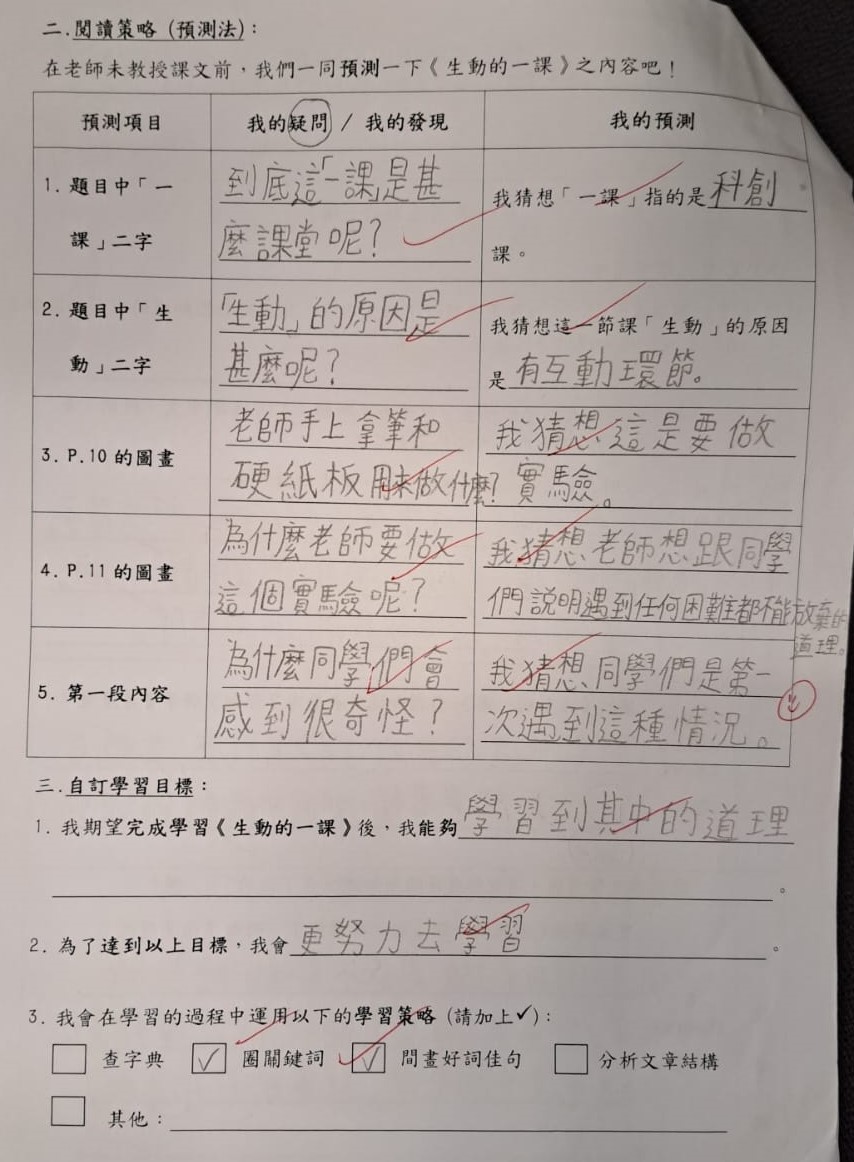 二.閱讀策略（預測法）：
在老師未教授課文前，我們一同預測一下《生動的一課》之內容吧！
預測項目
我的疑問 / 我的發現
我的預測
1. 題目中「一課」二字
到底這「一課」是甚
麼課堂呢？
我猜想「一課」指的是科創
課。
2. 題目中「生動」二字
「生動」的原因是
甚麼呢？
我猜想這一節課「生動」的原因
是有互動環節。
3. P.10 的圖畫
老師手上拿筆和
硬紙板用來做什麼？
我猜想這是要做
實驗。
4. P.11 的圖畫
為什麼老師要做
這個實驗呢？
我猜想老師想跟同學
們說明遇到任何困難都不能放棄的
道理。
5. 第一段內容
為什麼同學們會
感到很奇怪？
我猜想同學們是第一
次遇到這種情況。
三.自訂學習目標：
1. 我期望完成學習《生動的一課》後，我能夠學習到其中的道理
。
2. 為了達到以上目標，我會更努力去學習。
3. 我會在學習的過程中運用以下的學習策略（請加上✓）：
查字典 ✓ 圈關鍵詞 ✓ 間畫好詞佳句 分析文章結構
其他：